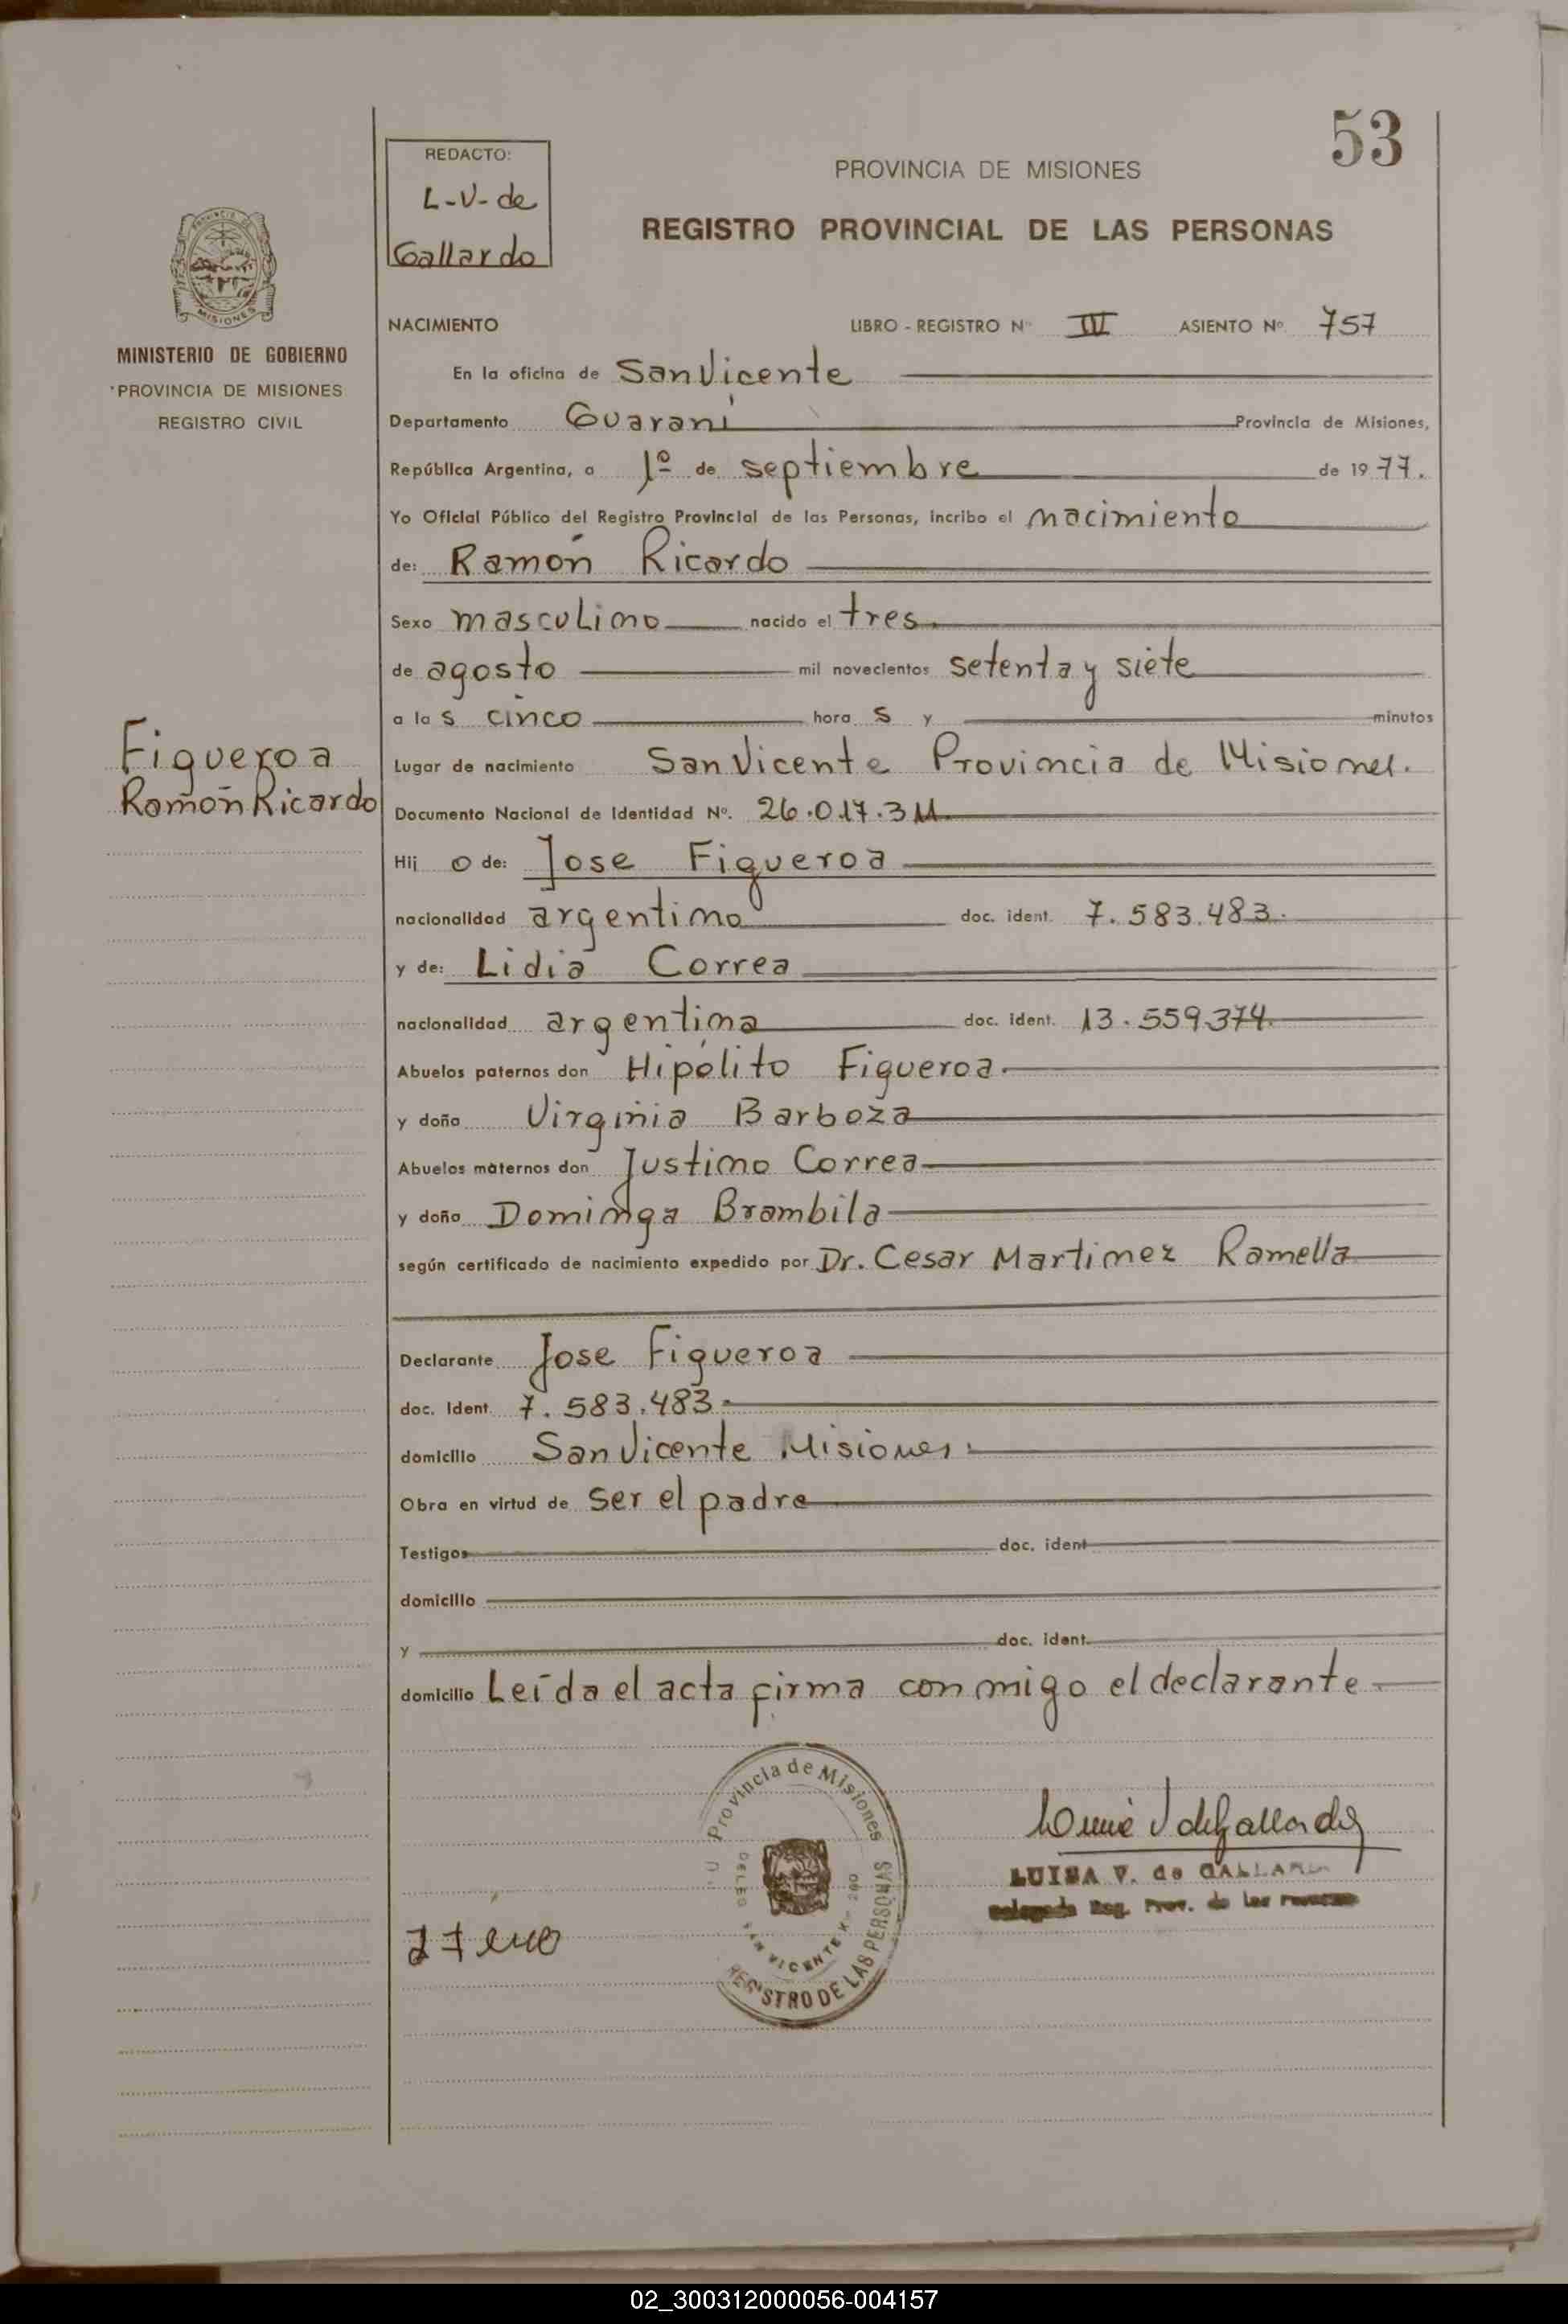 53
REDACTO:
L-V-de
Gallardo
PROVINCIA DE MISIONES
REGISTRO PROVINCIAL DE LAS PERSONAS
PROVINCIA DE
MISIONES
MINISTERIO DE GOBIERNO
PROVINCIA DE MISIONES
REGISTRO CIVIL
NACIMIENTO LIBRO - REGISTRO Nº IV ASIENTO Nº 757
En la oficina de San Vicente
Departamento Guaraní Provincia de Misiones,
República Argentina, a 1º de septiembre de 1977.
Yo Oficial Público del Registro Provincial de las Personas, incribo el nacimiento
de: Ramón Ricardo
Sexo masculino nacido el tres
de agosto mil novecientos setenta y siete
a las cinco horas y minutos
Figueroa
Ramón Ricardo
Lugar de nacimiento San Vicente Provincia de Misiones.
Documento Nacional de Identidad Nº. 26.017.311
Hijo de: Jose Figueroa
nacionalidad argentino doc. ident. 7.583.483.
y de: Lidia Correa
nacionalidad argentina doc. ident. 13.559.374.
Abuelos paternos don Hipólito Figueroa.
y doña Virginia Barboza
Abuelos maternos don Justino Correa
y doña Dominga Brambila
según certificado de nacimiento expedido por Dr. Cesar Martinez Ramella
Declarante Jose Figueroa
doc. Ident. 7.583.483.
domicilio San Vicente Misiones.
Obra en virtud de ser el padre
Testigos doc. ident
domicilio
y doc. ident.
domicilio Leída el acta firma conmigo el declarante.
Provincia de Misiones
SAN VICENTE
REGISTRO DE LAS PERSONAS
LUISA V. de GALLARDO
Delegada Reg. Prov. de las Personas
02_300312000056-004157